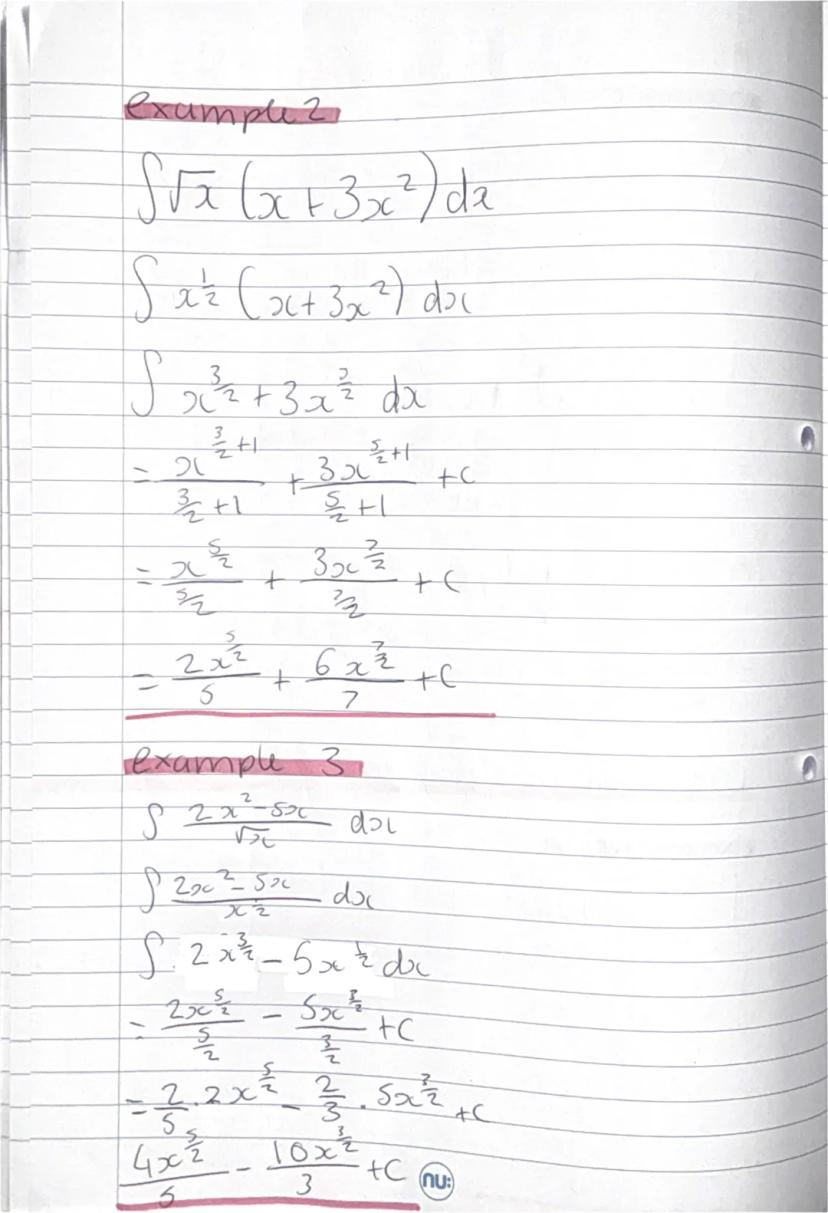 example 2
∫√x (x + 3x²) dx
∫ x^½ (x + 3x²) dx
∫ x^(3/2) + 3x^(5/2) dx
= x^(3/2 +1)/(3/2 +1) + 3x^(5/2 +1)/(5/2 +1) + C
= x^(5/2)/(5/2) + 3x^(7/2)/(7/2) + C
= 2x^(5/2)/5 + 6x^(7/2)/7 + C
example 3
∫ (2x² - 5x)/√x dx
∫ (2x² - 5x)/x^½ dx
∫ 2x^(3/2) - 5x^½ dx
= 2x^(5/2)/(5/2) - 5x^(3/2)/(3/2) + C
= 2/5 . 2x^(5/2) - 2/3 . 5x^(3/2) + C
4x^(5/2)/5 - 10x^(3/2)/3 + C
nu: